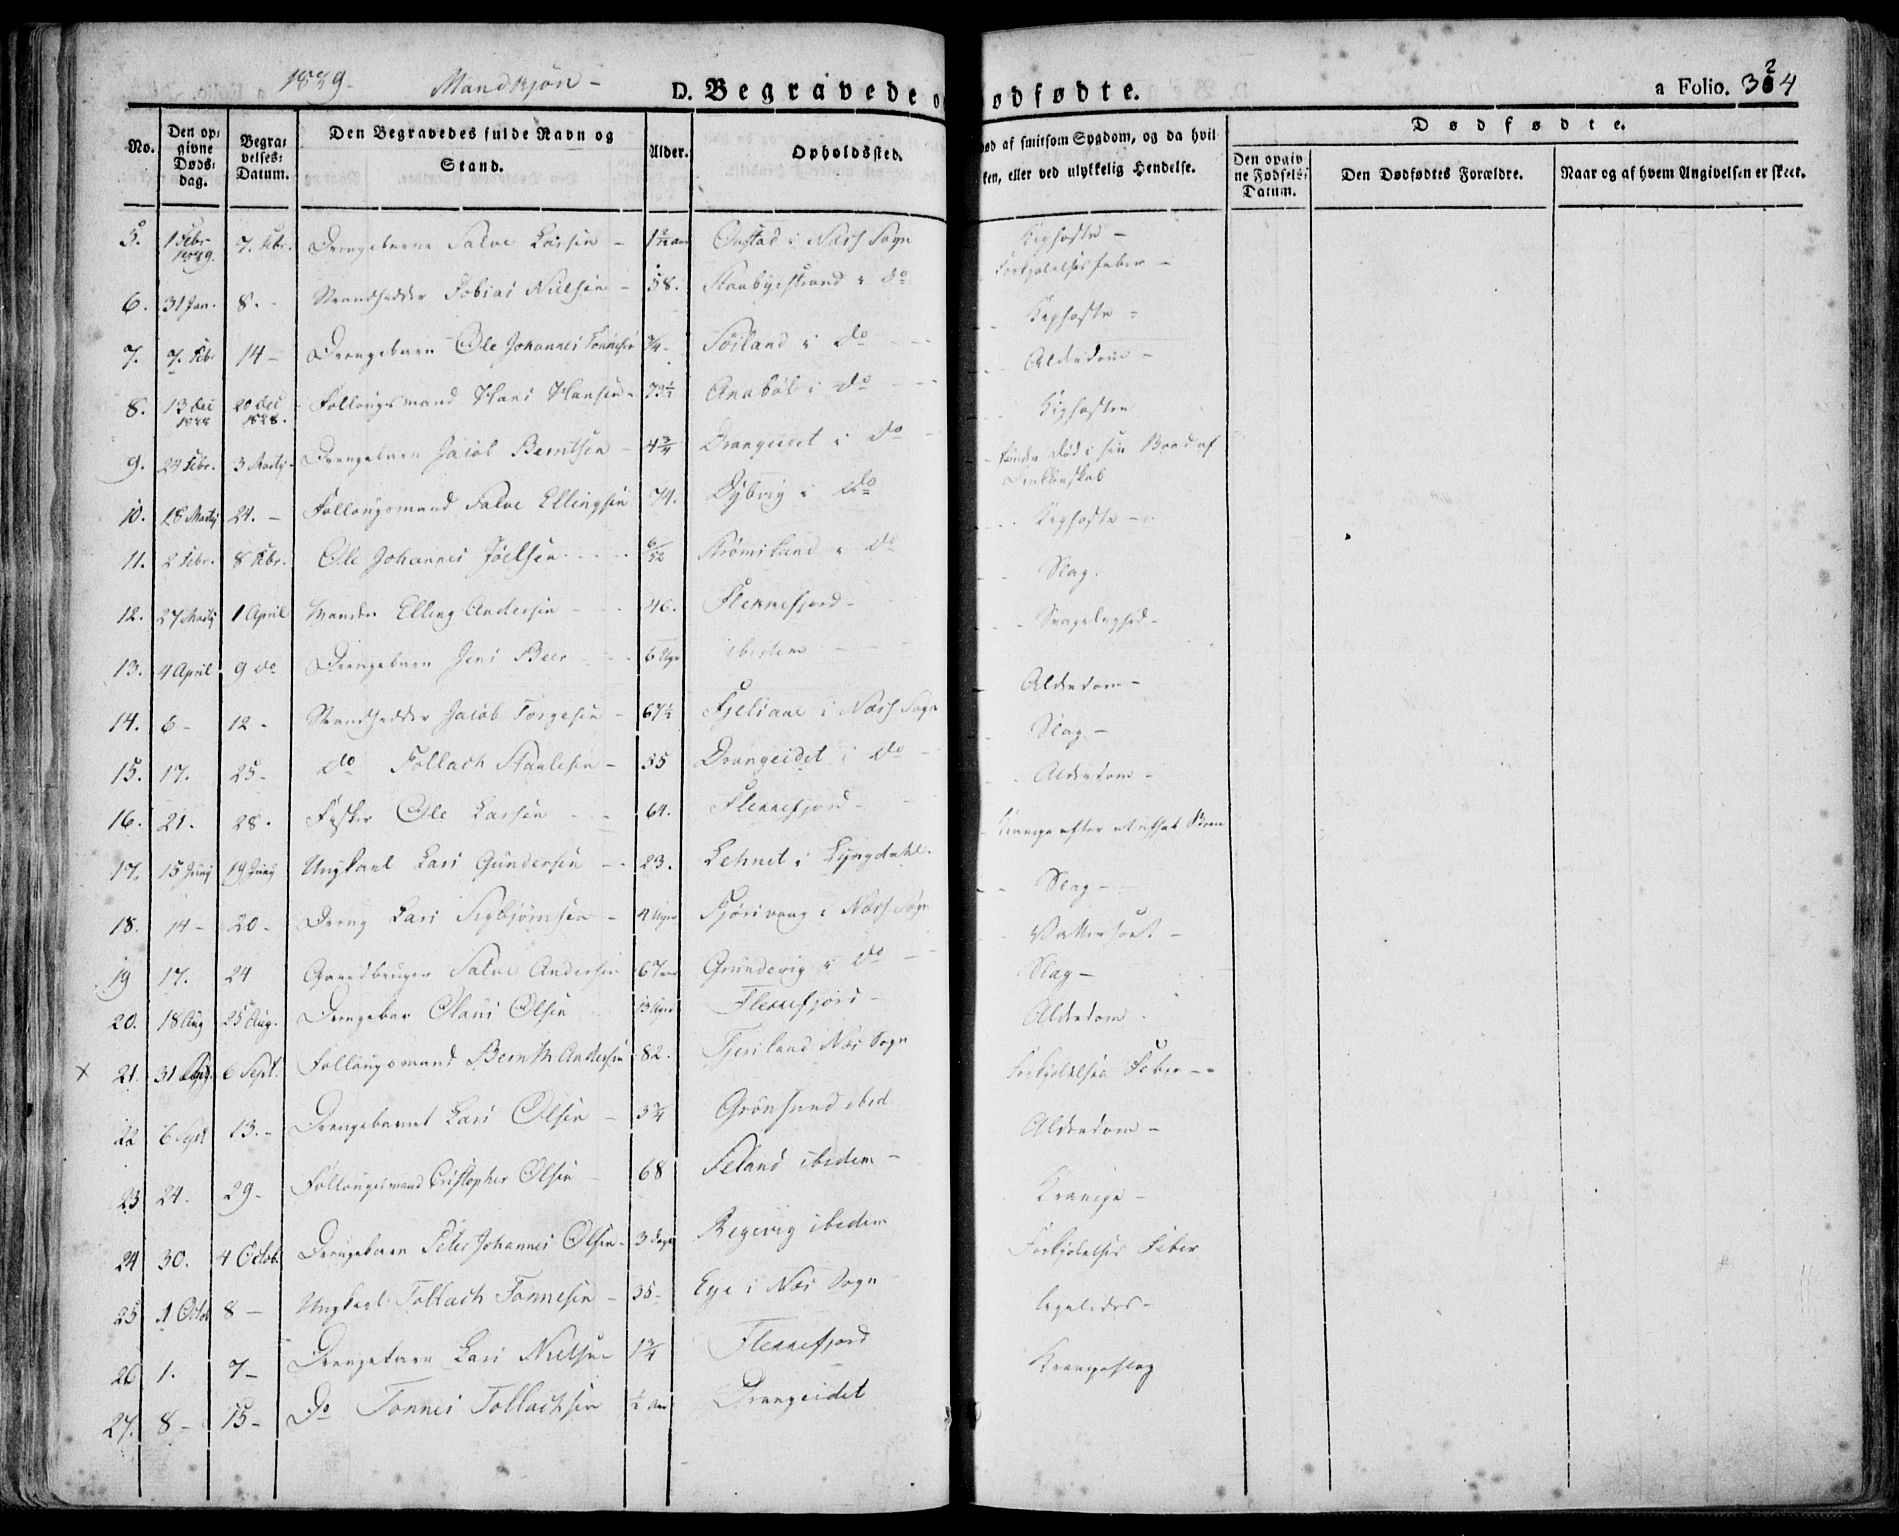 1839. Mandkjøn -
D. Begravede o
ødfødte.
a Folio. 324
No.
Den opgivne Dødsdag.
Begravelses-Datum.
Den Begravedes fulde Navn og Stand.
Alder.
Opholdssted.
ød af smitsom Sygdom, og da hvil
ken, eller ved ulykkelig Hendelse.
Dødfødte.
Den opgivne Fødsels-Datum.
Den Dødfødtes Forældre.
Naar og af hvem Angivelsen er skeet.
5. 1 Febr 1839. 7. Febr. Drengebarn Salve Larsen - Næss Sogn Kighoste -
6. 31 Jan. 8. - Strandsidder Tobias Nielsen - 58. i do Forkjølelsesfeber -
7. 7. Feb 14 - Drengebarn Ole Johannes Tønnesen 3/4 - i do Kighoste -
8. 13 Dec 20 Dec 1838. Follougsmand Hans Hansen - 79 1/2 Anabøl i do Alderdom -
9. 24 Febr. 3 Martj - Drengebarn Jacob Berntsen - 4 3/4 Drangeidet i do - Kighosten
10. 18 Martj 24. - Follougsmand Salve Ellingsen 74. Dybvig i do død i sin Baad af Drukkenskab
11. 2 Febr. 8 Febr. Ole Johannes Joelsen 6/52 do Kighoste -
12. 27 Martj 1 April Elling Andersen 46. Flekkefjord - Slag.
13. 4 April 9 do Drengebarn Jens Beer 6 Uger ibidem Svagelighed -
14. 6 - 12 - Strandsidder Jacob Torgesen - 67 1/2 i Næss Sogn Alderdom -
15. 17. 25 - do Tollach Staalesen - 55 Drangeidet i do Slag -
16. 21. 28. Fisker Ole Larsen 64. Flekkefjord - Alderdom -
17. 15 Junj 19 Junj Ungkarl Lars Gundersen - 23. Lehnet i Lyngdahl. Krampe efter et
18. 14 - 20 - Dreng Lars Sigbjørnsen - 4 Uger i Næss Sogn Slag -
19 17. 24 Gaardbruger Salve Andersen 67 Grundevig i do - Vattersoet -
20. 18 Aug 25 Aug. Drengebar Olaus Olsen 13 Uger Flekkefjord - Slag -
x 21. 31 Aug. 6 Sept. Follougsmand Bernth Andersen 82. Næs Sogn Alderdom
22 6 Sept 13. - Drengebarnet Lars Olsen - 3 3/4 Grønsund ibid Forkjølelses Feber -
23 24. 29 - Follougsmand Cristopher Olsen 68 Seland ibidem - Alderdom -
24 30. 4 Octob. Drengebarn Peter Johannes Olsen - 3 Dage Regevig ibidem Krampe -
25 1 Octob 8 - Ungkarl Tollach Tønnesen - 35 - Eye i Næs Sogn Forkjølelses Feber
26 1. 7 - Drengebarn Lars Nielsen 1 3/4 Flekkefjord ligeledes -
27. 8 - 15 - Do Tønnes Tollachsen 1/2 Aar Drangeidet Krampeslag